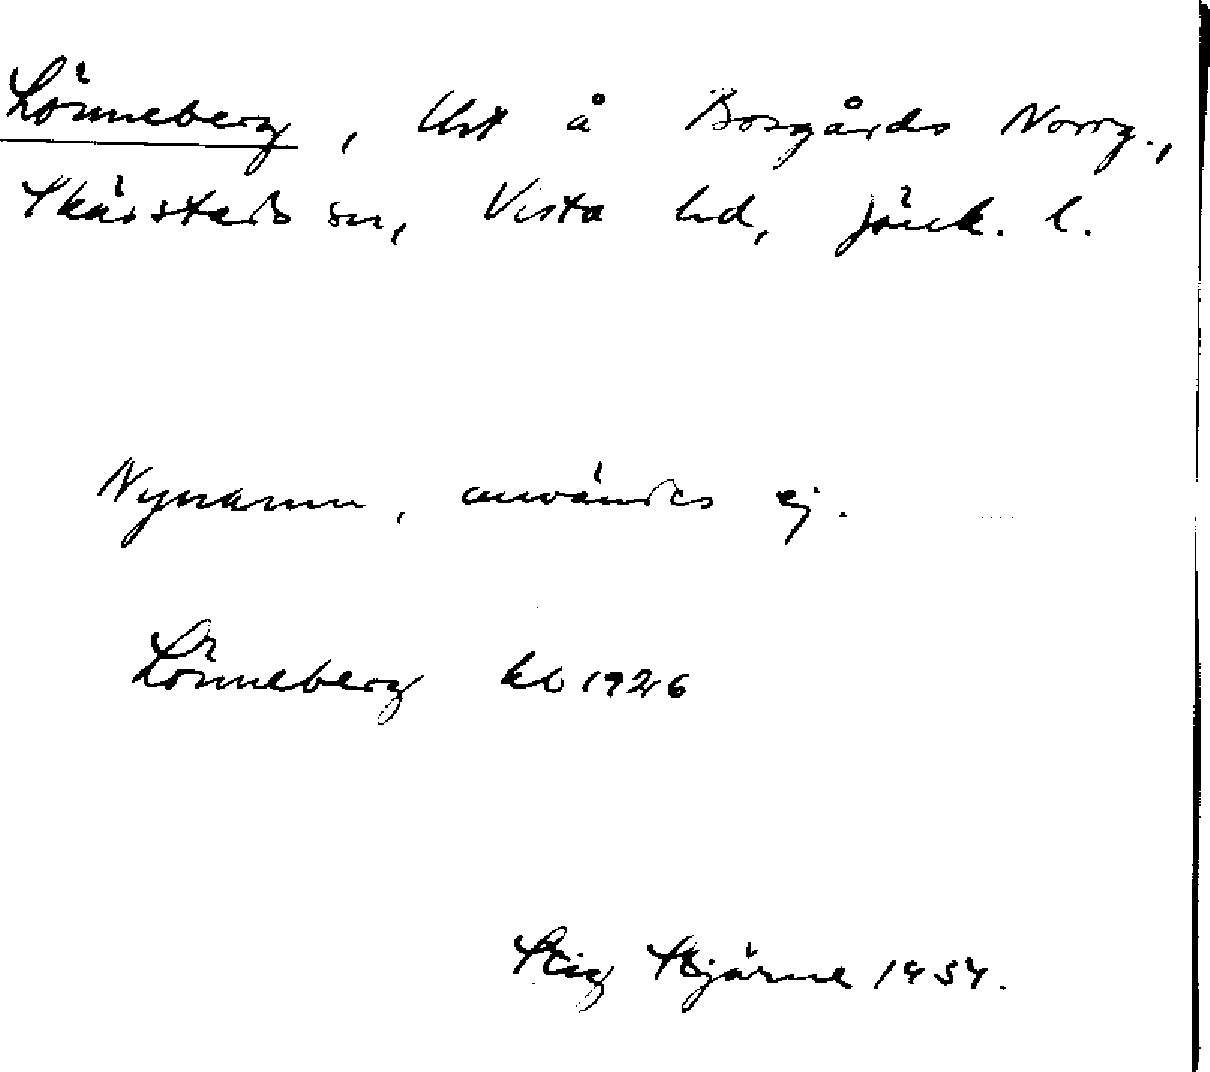 Lönneberg, lht å Bosgårds Norrg.,
Skärstads sn, Vista hd, Jönk. l.
Nynamn, användes ej.
Lönneberg kb 1926
Stig Stjärne 1954.